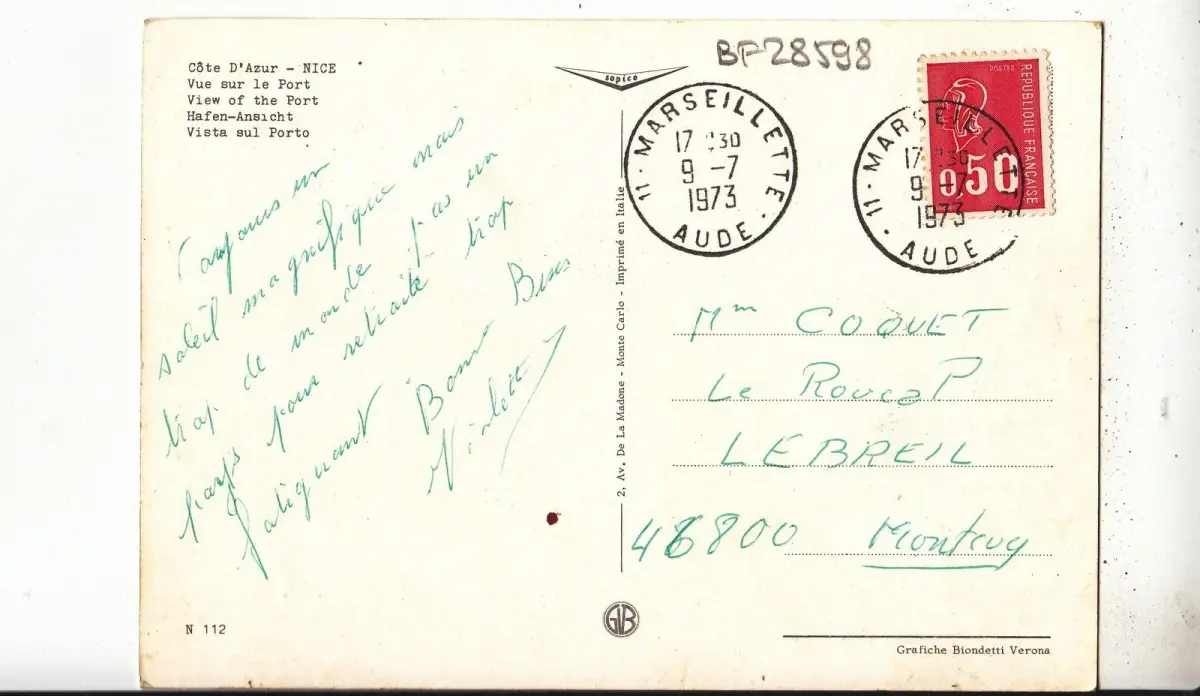 Côte D'Azur - NICE
Vue sur le Port
View of the Port
Hafen-Ansicht
Vista sul Porto
BF28598
sopico
11 · MARSEILLETTE · AUDE ·
17 30
9 -7
1973
11 · MARSEILLETTE · AUDE ·
17 30
9 -7
1973
POSTES
REPUBLIQUE FRANÇAISE
0,50
Toujours un
soleil magnifique mais
trop de monde
pays pour retraité trop
fatiguant Bons Bises
2, Av. De La Madone - Monte Carlo - Imprimé en Italie
Mm COQUET
Le Roucal
LEBREIL
46800 Montcuq
N 112
GVB
Grafiche Biondetti Verona